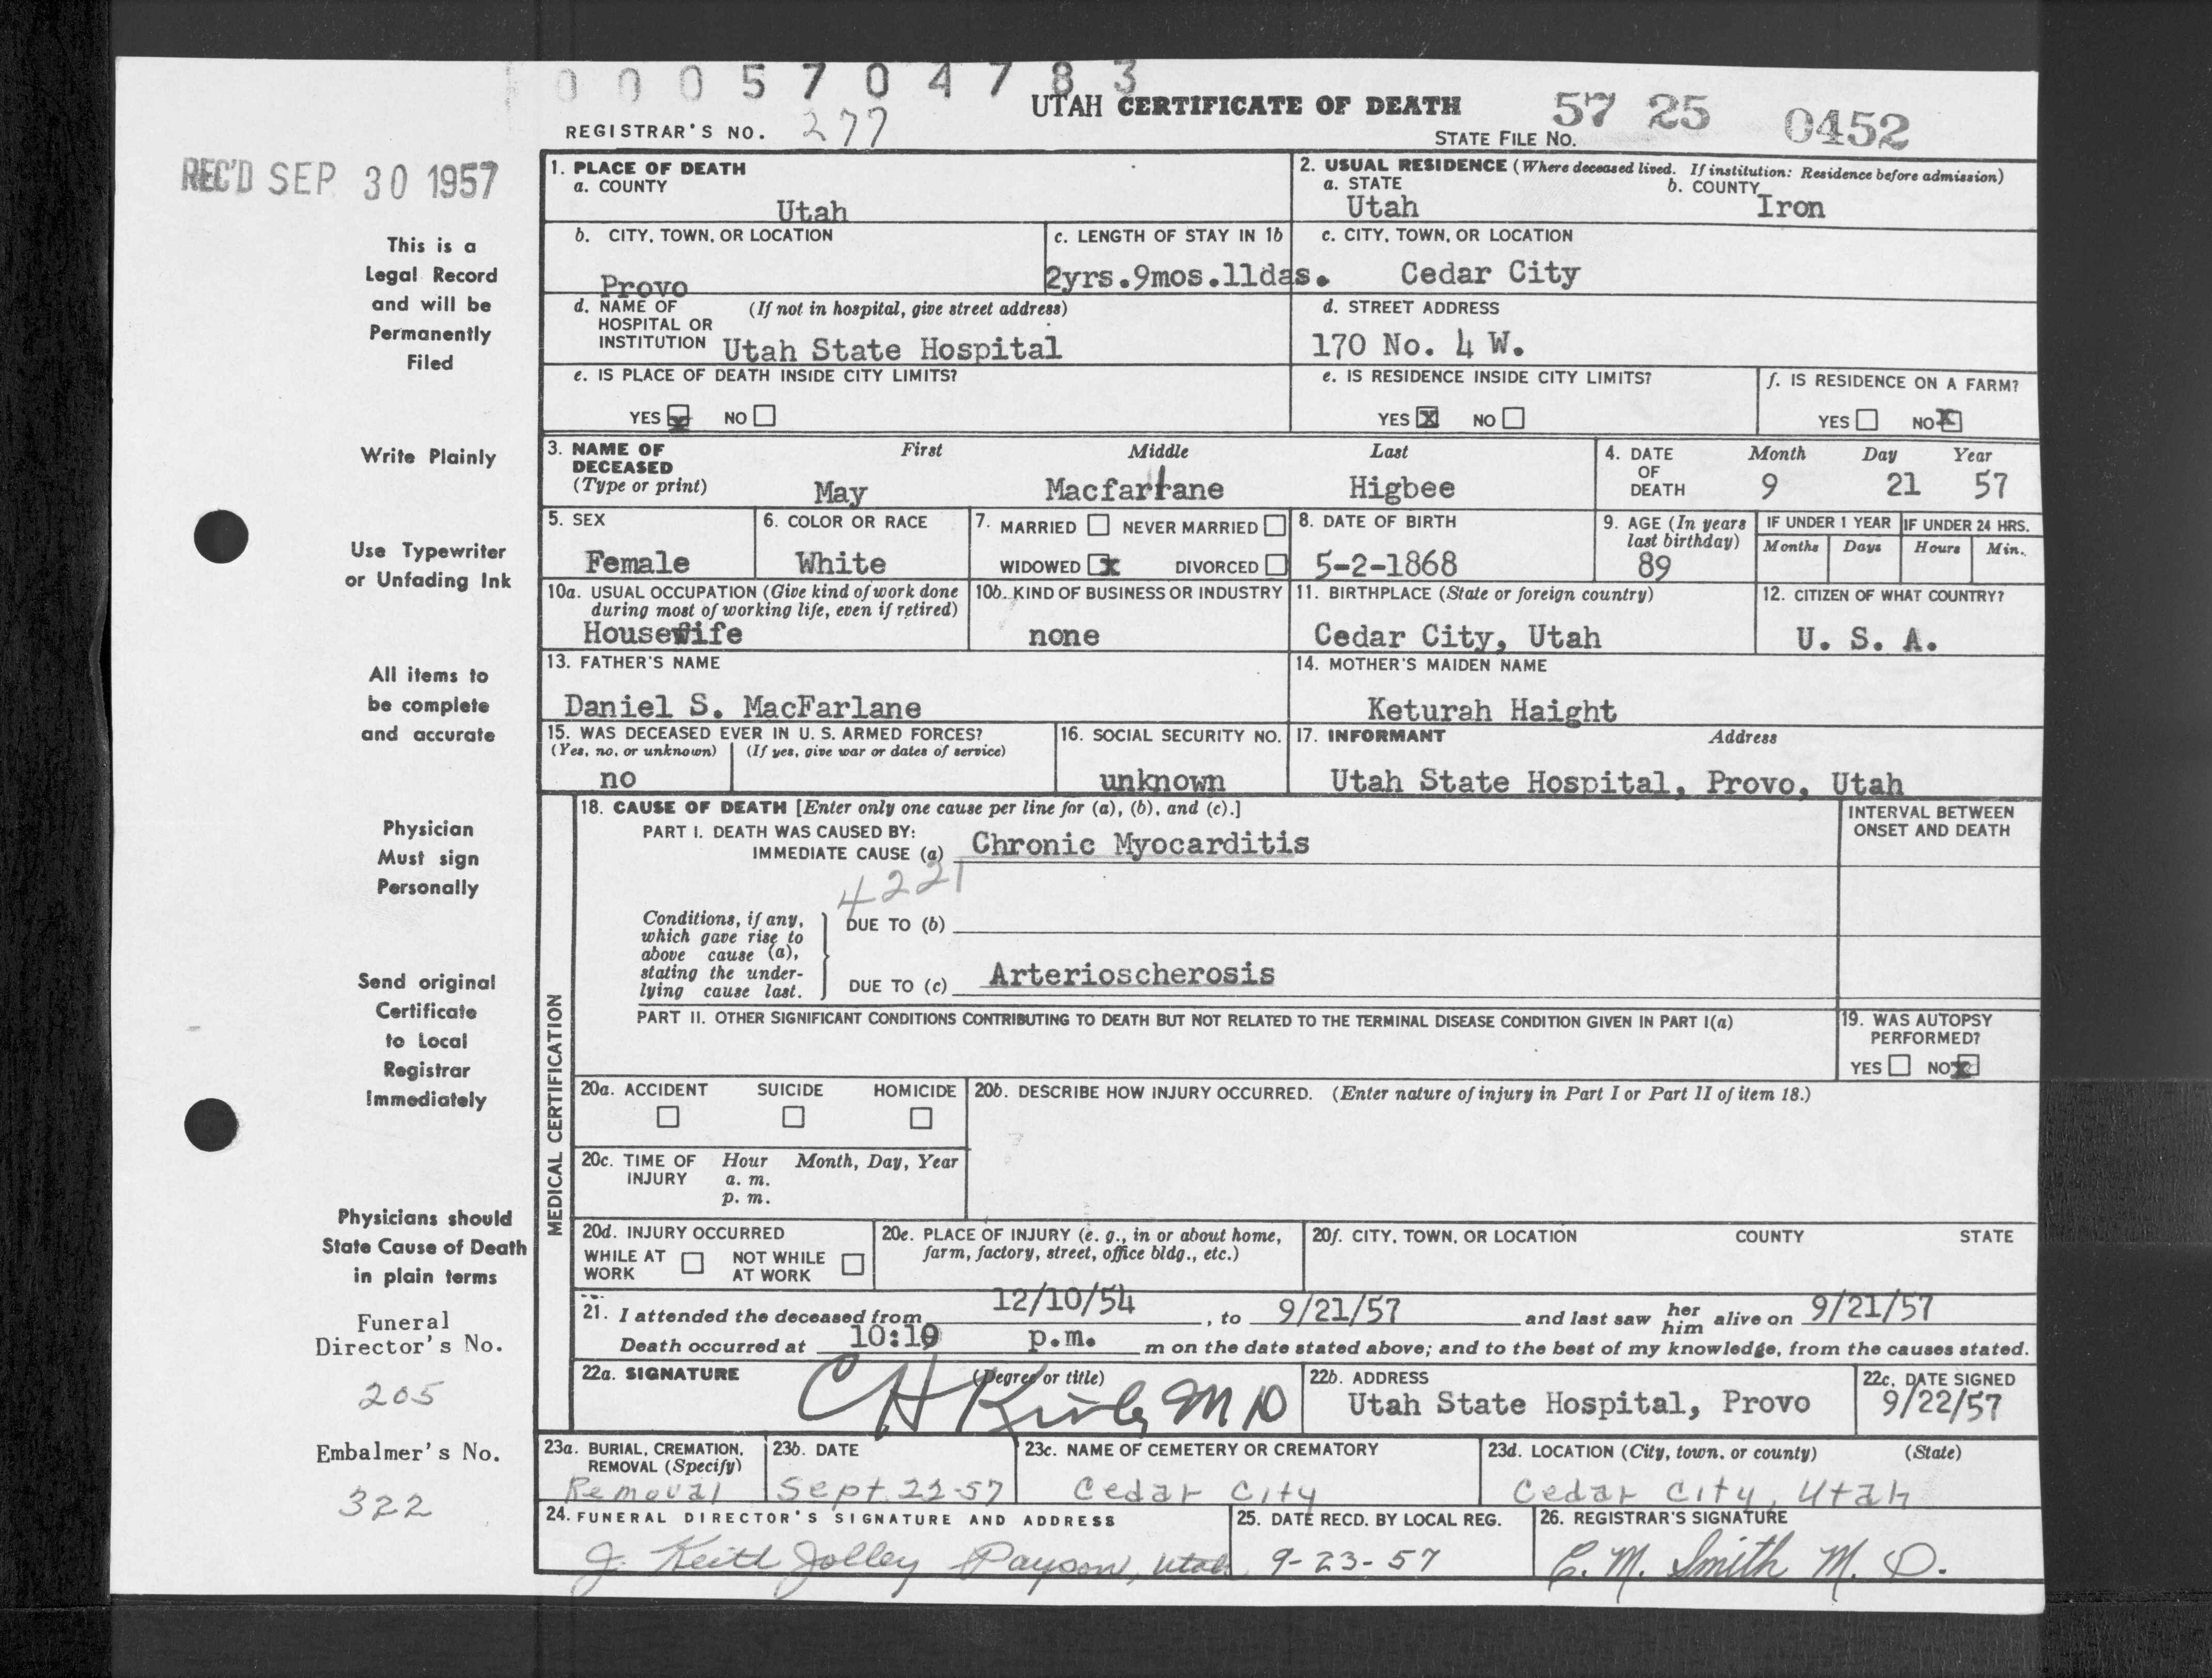 0 0 0 5 7 0 4 7 8 3
UTAH CERTIFICATE OF DEATH
57 25 0452
REGISTRAR'S NO. 277
STATE FILE NO.
REC'D SEP 30 1957
This is a
Legal Record
and will be
Permanently
Filed
Write Plainly
Use Typewriter
or Unfading Ink
All items to
be complete
and accurate
Physician
Must sign
Personally
Send original
Certificate
to Local
Registrar
Immediately
Physicians should
State Cause of Death
in plain terms
Funeral
Director's No.
205
Embalmer's No.
322
1. PLACE OF DEATH
a. COUNTY
Utah
2. USUAL RESIDENCE (Where deceased lived. If institution: Residence before admission)
a. STATE b. COUNTY
Utah Iron
b. CITY, TOWN, OR LOCATION
Provo
c. LENGTH OF STAY IN 1b
2yrs.9mos.11das.
c. CITY, TOWN, OR LOCATION
Cedar City
d. NAME OF (If not in hospital, give street address)
HOSPITAL OR
INSTITUTION Utah State Hospital
d. STREET ADDRESS
170 No. 4 W.
e. IS PLACE OF DEATH INSIDE CITY LIMITS?
YES x NO
e. IS RESIDENCE INSIDE CITY LIMITS?
YES X NO
f. IS RESIDENCE ON A FARM?
YES NO X
3. NAME OF First Middle Last
DECEASED
(Type or print) May Macfarlane Higbee
4. DATE Month Day Year
OF
DEATH 9 21 57
5. SEX
Female
6. COLOR OR RACE
White
7. MARRIED NEVER MARRIED
WIDOWED x DIVORCED
8. DATE OF BIRTH
5-2-1868
9. AGE (In years
last birthday)
89
IF UNDER 1 YEAR IF UNDER 24 HRS.
Months Days Hours Min.
10a. USUAL OCCUPATION (Give kind of work done
during most of working life, even if retired)
Housewife
10b. KIND OF BUSINESS OR INDUSTRY
none
11. BIRTHPLACE (State or foreign country)
Cedar City, Utah
12. CITIZEN OF WHAT COUNTRY?
U. S. A.
13. FATHER'S NAME
Daniel S. MacFarlane
14. MOTHER'S MAIDEN NAME
Keturah Haight
15. WAS DECEASED EVER IN U. S. ARMED FORCES?
(Yes, no, or unknown) (If yes, give war or dates of service)
no
16. SOCIAL SECURITY NO.
unknown
17. INFORMANT Address
Utah State Hospital, Provo, Utah
MEDICAL CERTIFICATION
18. CAUSE OF DEATH [Enter only one cause per line for (a), (b), and (c).]
PART I. DEATH WAS CAUSED BY:
IMMEDIATE CAUSE (a) Chronic Myocarditis
4221
INTERVAL BETWEEN
ONSET AND DEATH
Conditions, if any,
which gave rise to
above cause (a),
stating the under-
lying cause last.
DUE TO (b)
DUE TO (c) Arterioscherosis
PART II. OTHER SIGNIFICANT CONDITIONS CONTRIBUTING TO DEATH BUT NOT RELATED TO THE TERMINAL DISEASE CONDITION GIVEN IN PART I(a)
19. WAS AUTOPSY
PERFORMED?
YES NO X
20a. ACCIDENT SUICIDE HOMICIDE
20b. DESCRIBE HOW INJURY OCCURRED. (Enter nature of injury in Part I or Part II of item 18.)
20c. TIME OF Hour Month, Day, Year
INJURY a. m.
p. m.
20d. INJURY OCCURRED
WHILE AT NOT WHILE
WORK AT WORK
20e. PLACE OF INJURY (e. g., in or about home,
farm, factory, street, office bldg., etc.)
20f. CITY, TOWN, OR LOCATION COUNTY STATE
21. I attended the deceased from 12/10/54, to 9/21/57 and last saw her him alive on 9/21/57
Death occurred at 10:10 p.m. m on the date stated above; and to the best of my knowledge, from the causes stated.
22a. SIGNATURE (Degree or title)
C H M D
22b. ADDRESS
Utah State Hospital, Provo
22c. DATE SIGNED
9/22/57
23a. BURIAL, CREMATION,
REMOVAL (Specify)
Removal
23b. DATE
Sept 22-57
23c. NAME OF CEMETERY OR CREMATORY
Cedar City
23d. LOCATION (City, town, or county) (State)
Cedar City, Utah
24. FUNERAL DIRECTOR'S SIGNATURE AND ADDRESS
J. Keith Jolley Payson, Utah
25. DATE RECD. BY LOCAL REG.
9-23-57
26. REGISTRAR'S SIGNATURE
C. M. Smith M. D.